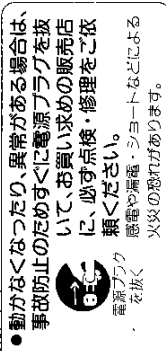 ●動かなくなったり、異常がある場合は、
事故防止のためすぐに電源プラグを抜
いて、お買い求めの販売店
に、必ず点検・修理をご依
頼ください。
感電や漏電・ショートなどによる
火災の恐れがあります。
電源プラグ
を抜く